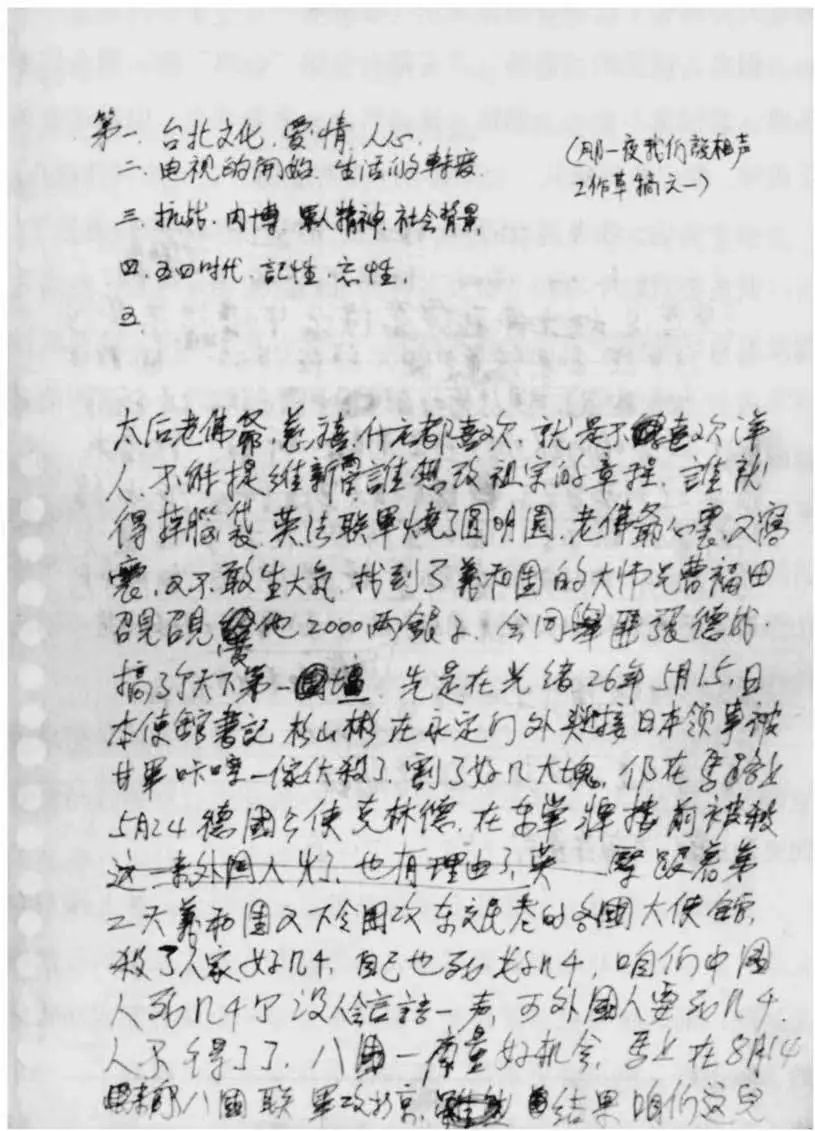 第一. 台北文化. 愛情. 人心.
二. 电视的開始. 生活的轉变
三. 抗战. 内博. 軍人精神. 社会背景
四. 五四时代. 記性. 忘性.
五
(那一夜我们說相声
工作草稿之一)
太后老佛爺. 慈禧. 什么都喜欢. 就是不喜欢洋
人. 不能提維新. 誰想改祖宗的章程. 誰就
得掉腦袋. 英法联軍燒了圆明園. 老佛爺心裏又窝
囊. 又不敢生大气. 找到了義和團的大师兄曹福田
給他2000両銀子. 会同張德成.
搞了个天下第一壇. 先是在光緒26年5月15日
本使館書記杉山彬在永定门外迎接日本领事被
甘軍咔嚓一傢伙殺了. 割了好几大塊. 仍在馬路上
5月24德國公使克林德. 在东单牌楼前被殺
这一来外国人火了. 也有理由了. 跟着第
二天義和團又下令围攻东交民巷的各國大使館.
殺了人家好几个. 自己也死好几千. 咱们中國
人死几千. 没人会言語一声. 可外國人要死几个
人不得了了. 八國一商量好机会. 馬上在8月14
八國联軍攻北京. 結果咱们这兒